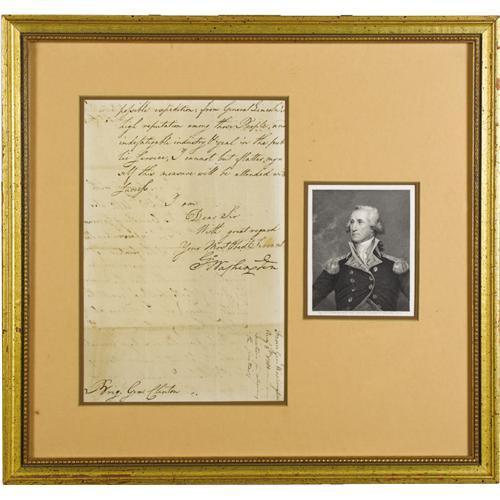 possible expedition; from General Lincoln's
high reputation among those People, and
indefatigable industry & zeal in the pub
lic Service, I cannot but flatter my
self this measure will be attended with
Success.
I am
Dear Sir
With great regard
Your Most Obedt Servant
Go Washington
Brig. Genl Clinton
From Genl Washington